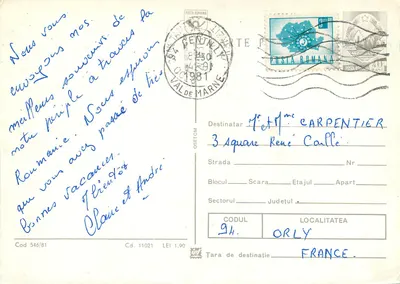 Nous vous
envoyons nos
meilleurs souvenirs de
notre periple à travers la
Roumanie. Nous espérons
que vous avez passé de très
bonnes vacances.
A bientôt
Claire et André
94 GENTILLY
1981
VAL DE MARNE
POSTA ROMANA
Destinatar Mr et Mme CARPENTIER
3 square René Caillé
Strada Nr.
Blocul Scara Etajul Apart.
Sectorul Județul
CODUL LOCALITATEA
94. ORLY
Țara de destinație: FRANCE.
Cod 546/81 Cd. 11025 LEI 1,90